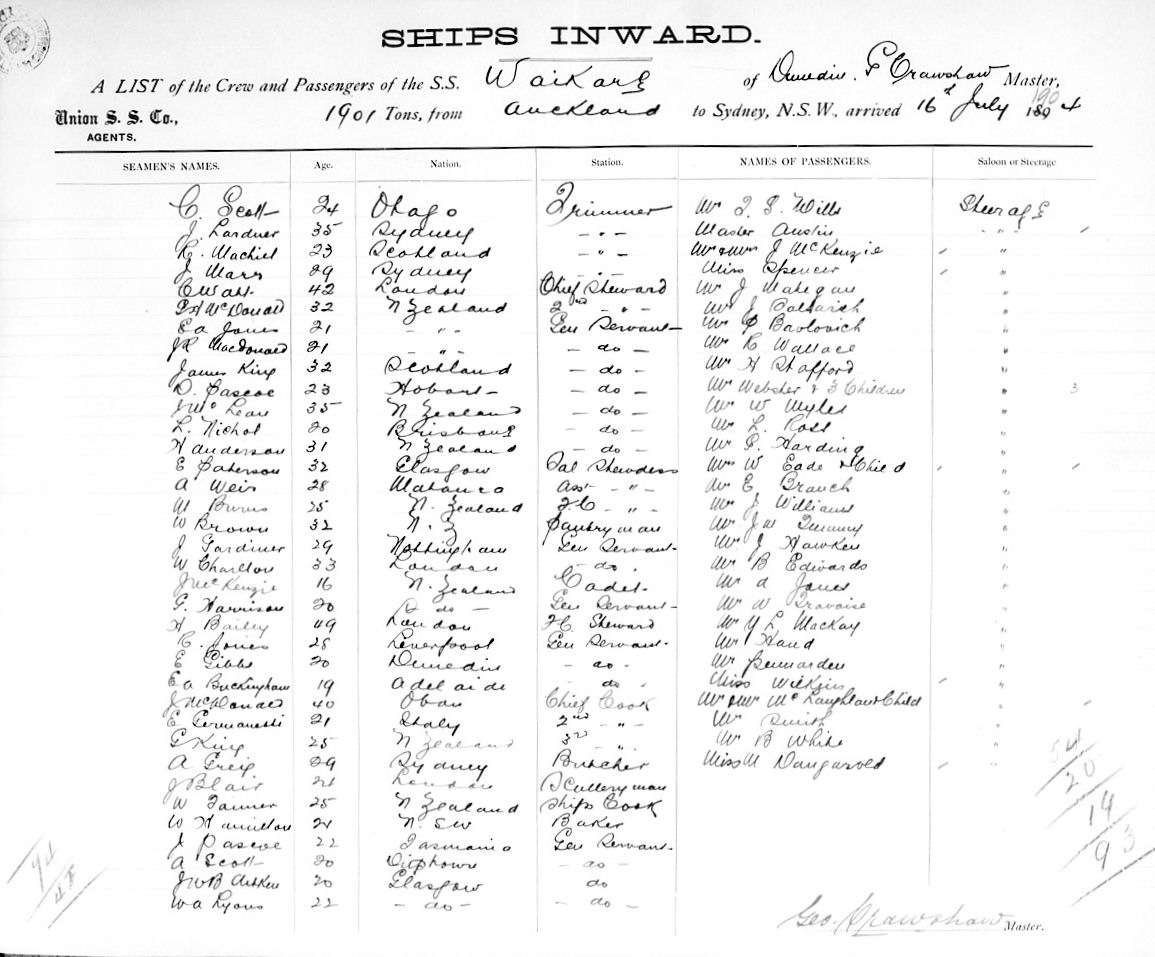 SHIPS INWARD.
A LIST of the Crew and Passengers of the S.S. Waikare of Dunedin. G Crawshaw Master,
Union S. S. Co., AGENTS. 1901 Tons, from Auckland to Sydney, N.S.W., arrived 16th July 1904
SEAMEN'S NAMES. Age. Nation. Station. NAMES OF PASSENGERS. Saloon or Steerage
C. Scott 24 Otago Trimmer Mr T. S. Wills Steerage
J. Lardner 35 Sydney - " - Master Austin "
R. Machiel 23 Scotland - " - Mr & Mrs J McKenzie "
J Marr 29 Sydney - " - Miss Spencer "
C Watt 42 London Chief Steward Mr J Mahegan "
McDonald 32 N Zealand 2nd - " - Mr J "
E A Jones 21 - " - Gen Servant Mr Pavlovich "
J R MacDonald 21 - " - - do - Mr R Wallace "
James King 32 Scotland - do - Mr H Stafford "
D. Pascoe 23 Hobart - do - Mr Webster & 3 Children " 3
J McLean 35 N Zealand - do - Mr W Myles "
L. Nichol 20 Brisbane - do - Mr L. Ross "
H Anderson 31 N Zealand - do - Mr Harding "
E Paterson 32 Glasgow Sal Stewdess Mrs W Eade & Child "
A Weir 28 Asst - " - Mr E Branch "
M Burns 25 N. Zealand F C - " - Mr J Williams "
W Brown 32 N. Z Pantryman Mr J W "
J Gardiner 29 Nottingham Gen Servant Mr J Hawken "
W Charlton 33 London - do - Mr B Edwards "
J McKenzie 16 N. Zealand Cadet Mr A Jones "
G. Harrison 20 - do - Gen Servant Mr W "
H Bailey 49 London F C Steward Mr L Mackay "
R. Jones 28 Liverpool Gen Servant Mr Hand "
E Gibbs 20 Dunedin - do - Mr "
E A Buckingham 19 Adelaide - do - Miss Wilkins "
J McDonald 40 Oban Chief Cook Mr & Mrs McLaughlan & Child "
E 21 Italy 2nd - " - Mr Smith "
G King 25 N Zealand 3rd - " - Mr B White "
A Greig 29 Sydney Butcher Miss M Dangarveld "
J Blair 21 London Sculleryman
W Tanner 25 N Zealand Ships Cook
W Hamilton 21 N. SW Baker
J Pascoe 22 Tasmania Gen Servant
A Scott 20 - do -
J W B Aitken 20 Glasgow do
W A Lyons 22 - do - - do -
54
20
14
93
74
Geo. Crawshaw Master.